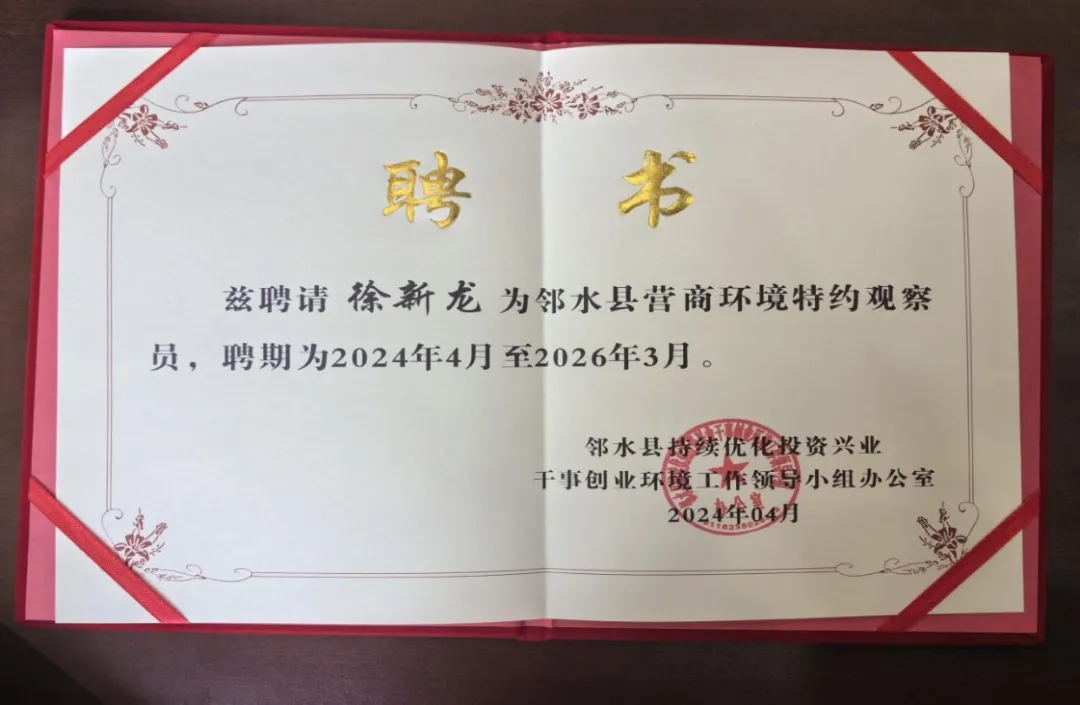 聘书
兹聘请 徐新龙 为邻水县营商环境特约观察
员，聘期为2024年4月至2026年3月。
邻水县持续优化投资兴业
干事创业环境工作领导小组办公室
2024年04月